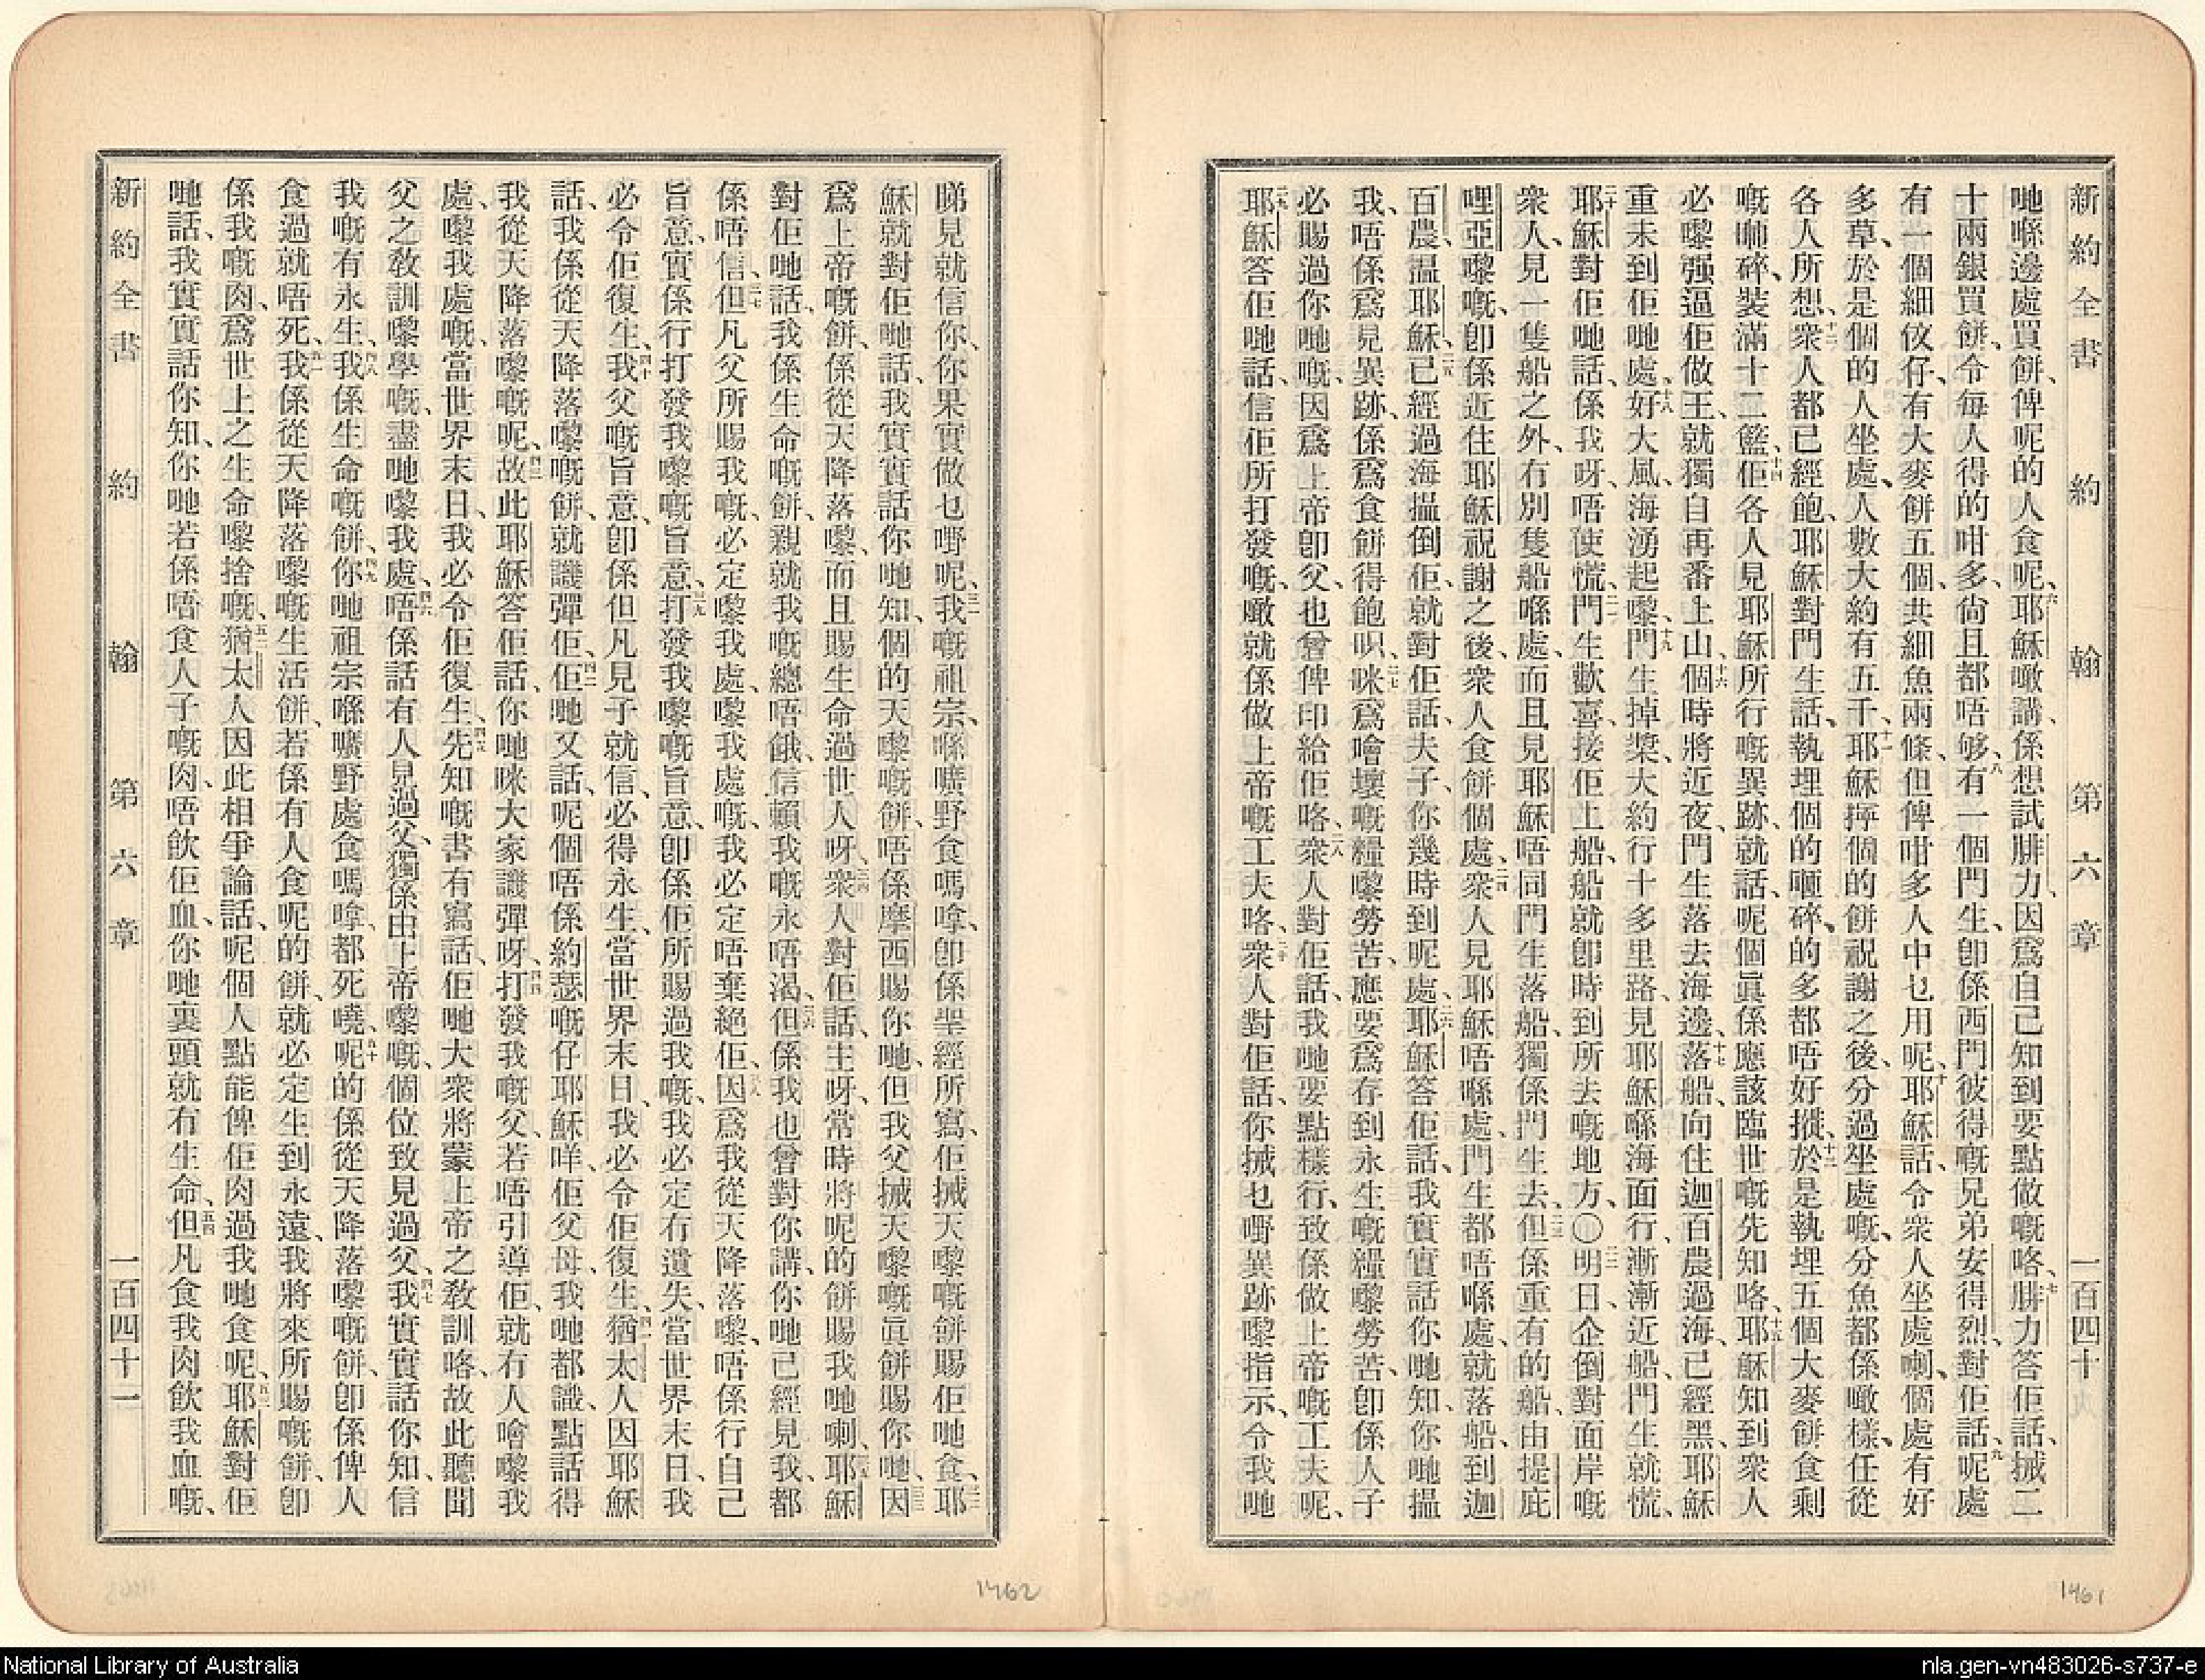 新約全書　約　翰　第六章　一百四十
哋喺邊處買餅、俾呢的人食呢、六耶穌噉講、係想試腓力、因爲自己知到要點做嘅咯、七腓力答佢話、𢫏二
十兩銀買餅、令每人得的咁多、尙且都唔够、八有一個門生、卽係西門彼得嘅兄弟安得烈、對佢話、九呢處
有一個細伩仔、有大麥餅五個、共細魚兩條、但俾咁多人中乜用呢、十耶穌話、令衆人坐處喇、個處有好
多草、於是個的人坐處、人數大約有五千、十一耶穌擰個的餅祝謝之後、分過坐處嘅、分魚都係噉樣、任從
各人所想、十二衆人都已經飽、耶穌對門生話、執埋個的𠼻碎、的多都唔好摐、十三於是執埋五個大麥餅食剩
嘅𠼻碎、裝滿十二籃、十四佢各人見耶穌所行嘅異跡、就話、呢個眞係應該臨世嘅先知咯、十五耶穌知到衆人
必嚟强逼佢做王、就獨自再番上山、十六個時將近夜、門生落去海邊、十七落船、向住迦百農過海、已經黑、耶穌
重未到佢哋處、十八好大風、海湧起嚟、十九門生掉槳、大約行十多里路、見耶穌喺海面行、漸漸近船、門生就慌、
二十耶穌對佢哋話、係我呀、唔使慌、二一門生歡喜接佢上船、船就卽時到所去嘅地方、〇二二明日、企倒對面岸嘅
衆人、見一隻船之外、冇別隻船喺處、而且見耶穌唔同門生落船、獨係門生去、二三但係重有的船、由提庇
哩亞嚟嘅、卽係近住耶穌祝謝之後、衆人食餅個處、二四衆人見耶穌唔喺處、門生都唔喺處、就落船、到迦
百農、搵耶穌、二五已經過海搵倒佢、就對佢話、夫子、你幾時到呢處、二六耶穌答佢話、我實實話你哋知、你哋搵
我、唔係爲見異跡、係爲食餅得飽呮、二七咪爲噲壞嘅糧嚟勞苦、應要爲存到永生嘅糧嚟勞苦、卽係人子
必賜過你哋嘅、因爲上帝卽父、也曾俾印給佢咯、二八衆人對佢話、我哋要點樣行、致係做上帝嘅工夫呢、
二九耶穌答佢哋話、信佢所打發嘅、噉就係做上帝嘅工夫咯、三十衆人對佢話、你𢫏乜嘢異跡嚟指示、令我哋
睇見就信你、你果實做乜嘢呢、三一我嘅祖宗、喺曠野食嗎嗱、卽係聖經所寫、佢𢫏天嚟嘅餅賜佢哋食、三二耶
穌就對佢哋話、我實實話你哋知、個的天嚟嘅餅、唔係摩西賜你哋、但我父𢫏天嚟嘅眞餅賜你哋、三三因
爲上帝嘅餅、係從天降落嚟、而且賜生命過世人呀、三四衆人對佢話、主呀、常時將呢的餅賜我哋喇、三五耶穌
對佢哋話、我係生命嘅餅、親就我嘅總唔餓、信賴我嘅永唔渴、三六但係我也曾對你講、你哋已經見我、都
係唔信、三七但凡父所賜我嘅、必定嚟我處、嚟我處嘅、我必定唔棄絕佢、三八因爲我從天降落嚟、唔係行自己
旨意、實係行打發我嚟嘅旨意、三九打發我嚟嘅旨意、卽係佢所賜過我嘅、我必定冇遺失、當世界末日、我
必令佢復生、四十我父嘅旨意、卽係但凡見子就信、必得永生、當世界末日、我必令佢復生、四一猶太人因耶穌
話、我係從天降落嚟嘅餅、就譏彈佢、四二佢哋又話、呢個唔係約瑟嘅仔耶穌咩、佢父母、我哋都識、點話得
我從天降落嚟嘅呢、四三故此耶穌答佢話、你哋咪大家譏彈呀、四四打發我嘅父、若唔引導佢、就冇人噲嚟我
處、嚟我處嘅、當世界末日、我必令佢復生、四五先知嘅書有寫話、佢哋大衆將蒙上帝之教訓咯、故此聽聞
父之教訓嚟學嘅、盡哋嚟我處、四六唔係話有人見過父、獨係由上帝嚟嘅、個位致見過父、四七我實實話你知、信
我嘅有永生、四八我係生命嘅餅、四九你哋祖宗喺曠野處食嗎嗱、都死嘵、五十呢的係從天降落嚟嘅餅、卽係俾人
食過就唔死、五一我係從天降落嚟嘅生活餅、若係有人食呢的餅、就必定生到永遠、我將來所賜嘅餅、卽
係我嘅肉、爲世上之生命嚟捨嘅、五二猶太人因此相爭論話、呢個人點能俾佢肉過我哋食呢、五三耶穌對佢
哋話、我實實話你知、你哋若係唔食人子嘅肉、唔飮佢血、你哋裏頭就冇生命、五四但凡食我肉飮我血嘅、
新約全書　約　翰　第六章　一百四十一
1462
1461
National Library of Australia
nla.gen-vn483026-s737-e